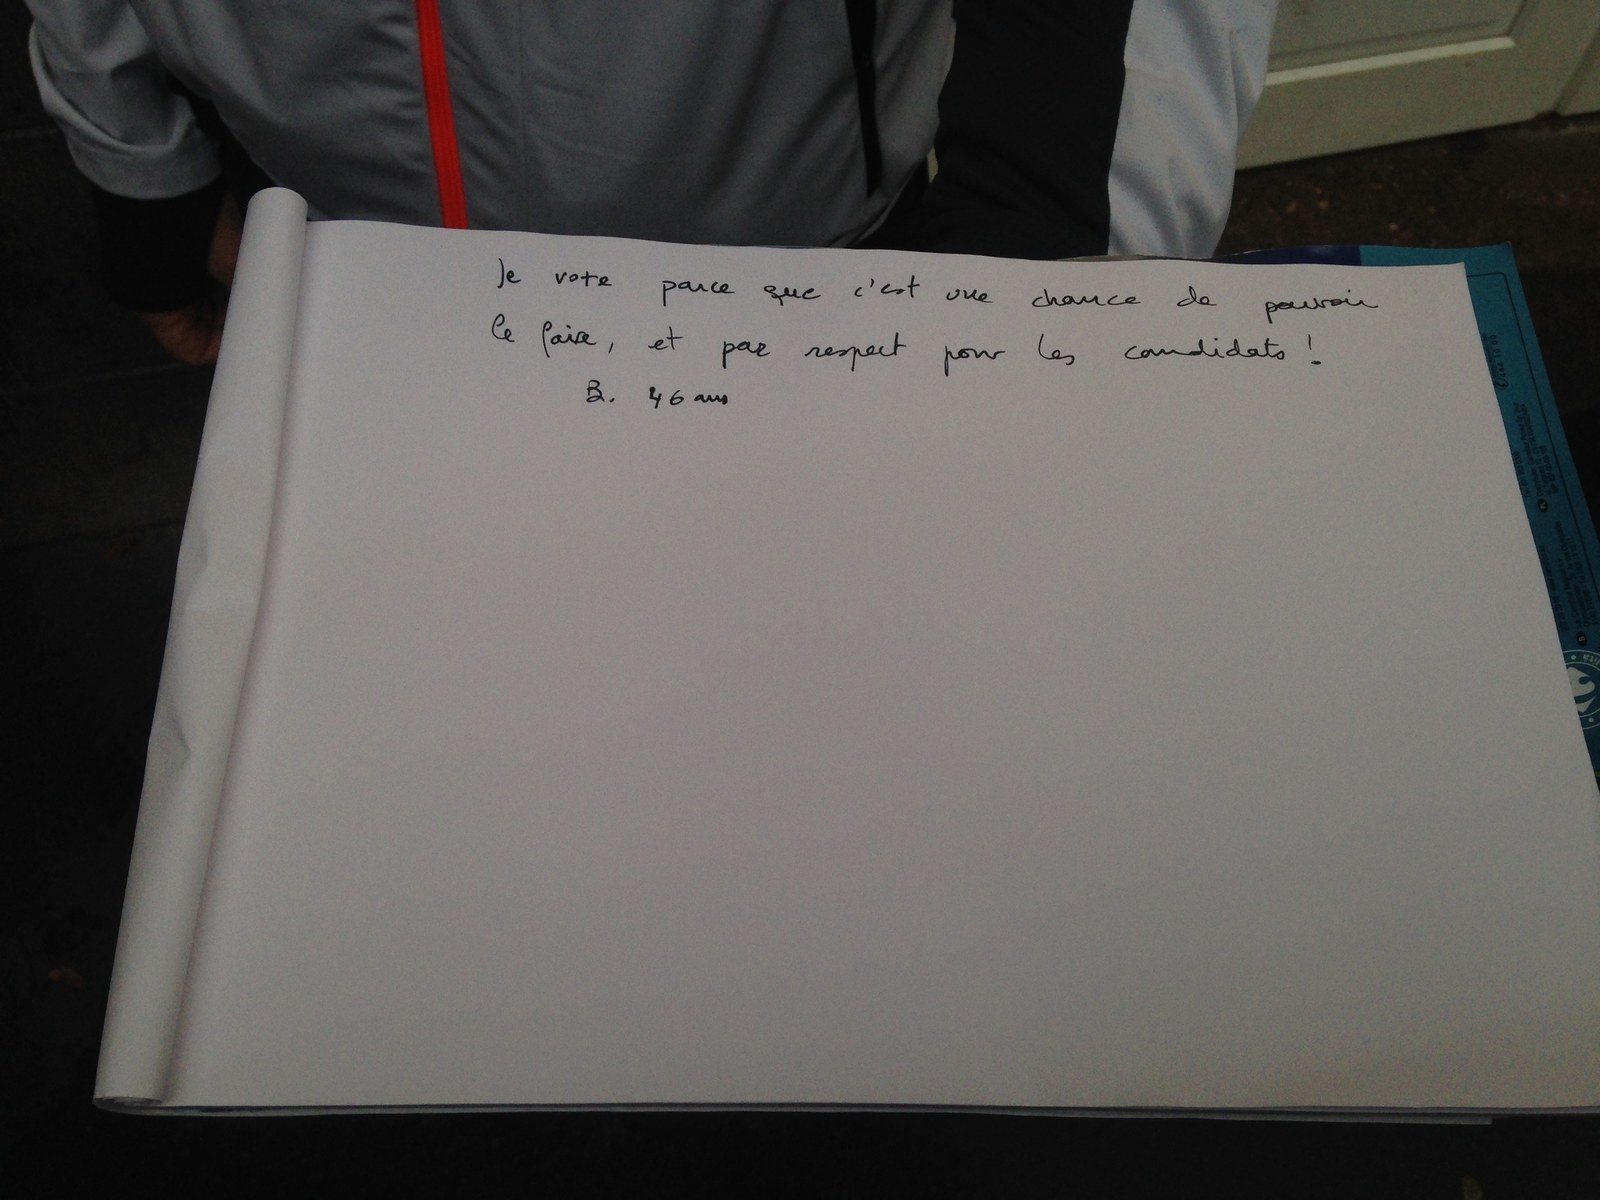 Je vote parce que c'est une chance de pouvoir
le faire, et par respect pour les candidats !
B. 46 ans